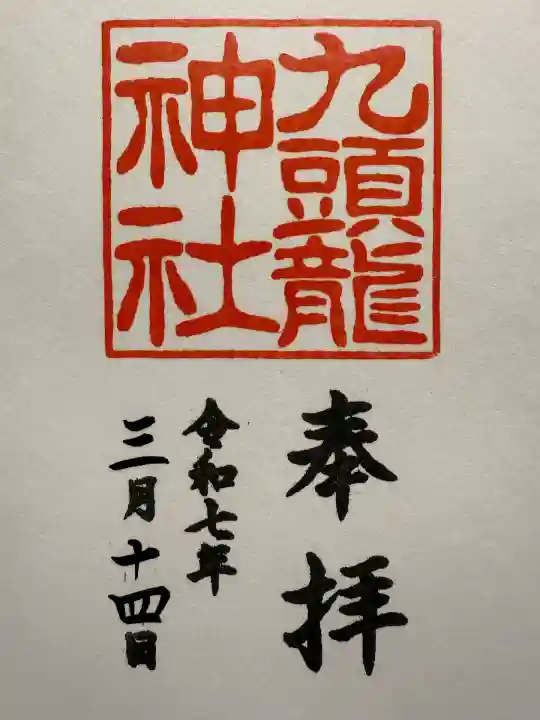 九頭龍
神社
奉拝
令和七年
三月十四日